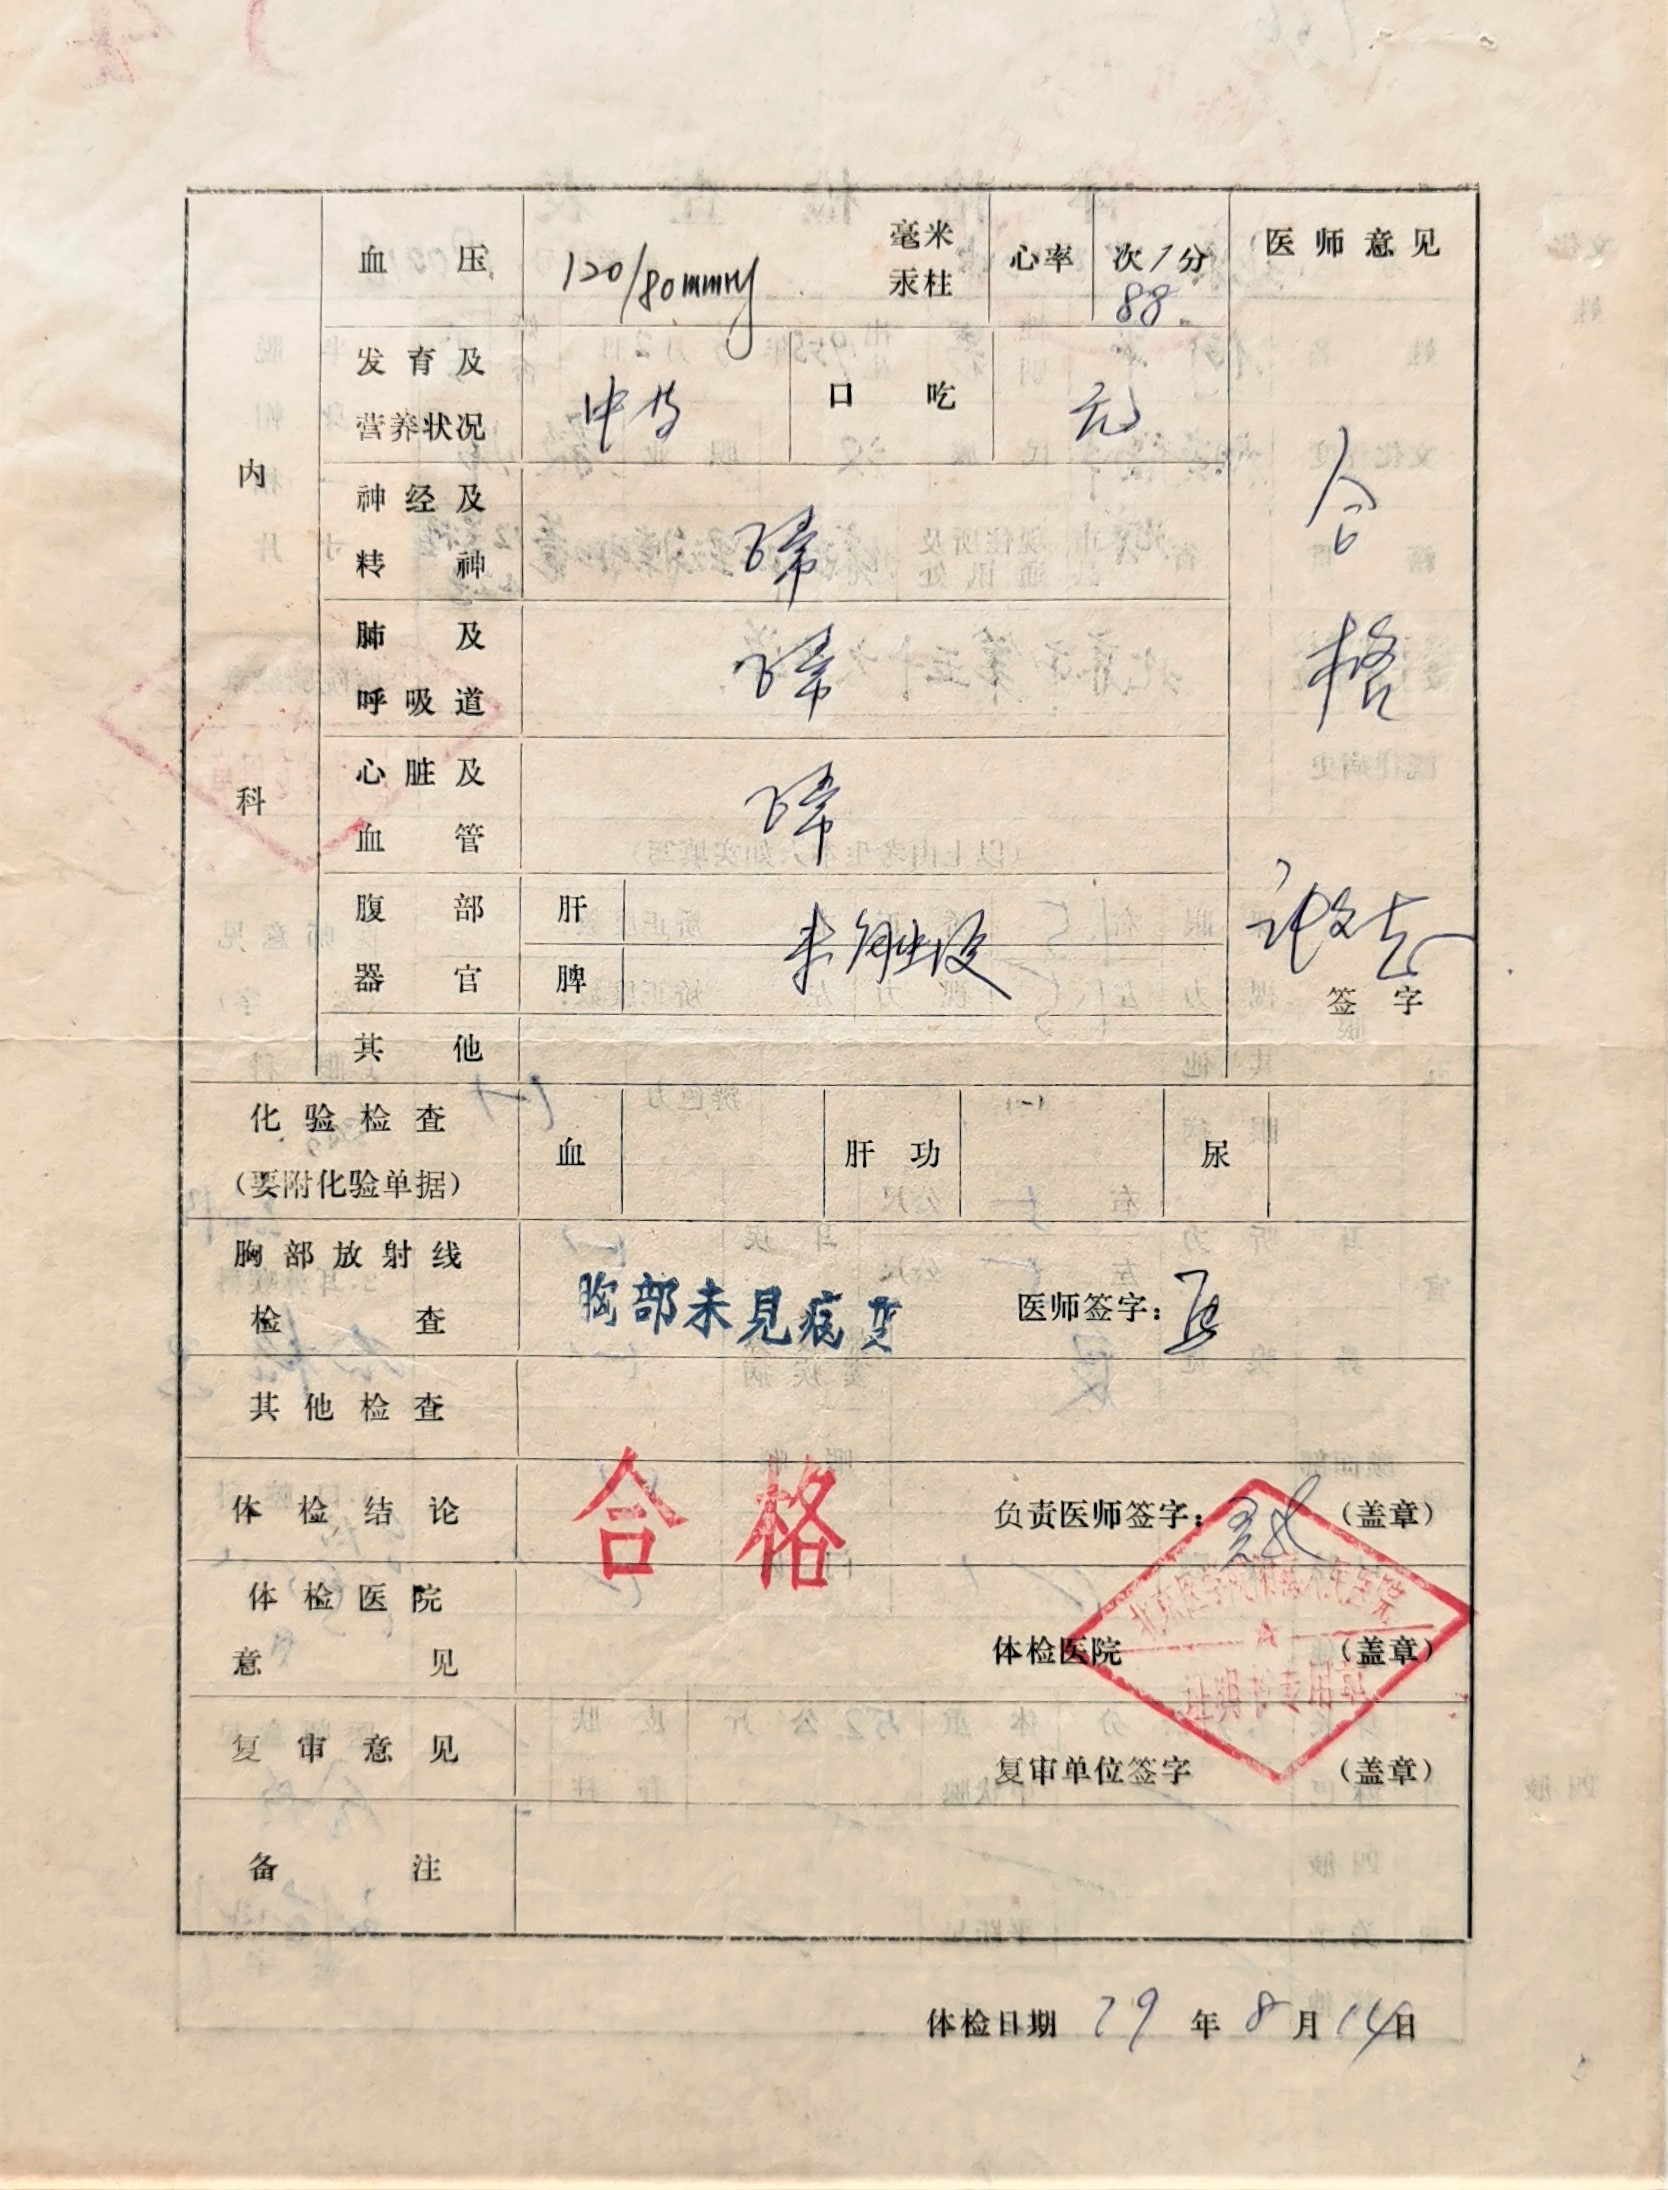 血 压 120/80mmHg 毫米汞柱 心率 次/分 88 医师意见
发育及营养状况 中等 口 吃 无
内 科
神经及精神 正常
合格
肺 及呼吸道 正常
心脏及血 管 正常
腹 部器 官 肝 脾 未触及
签 字
其 他
化验检查 血 肝功 尿
(要附化验单据)
胸部放射线检 查 胸部未見病变 医师签字:
其他检查
体检结论 合格 负责医师签字: (盖章)
体检医院意 见 体检医院 (盖章)
北京医学院附属人民医院
证明书专用章
复审意见 复审单位签字 (盖章)
备 注
体检日期 79 年 8 月 14 日